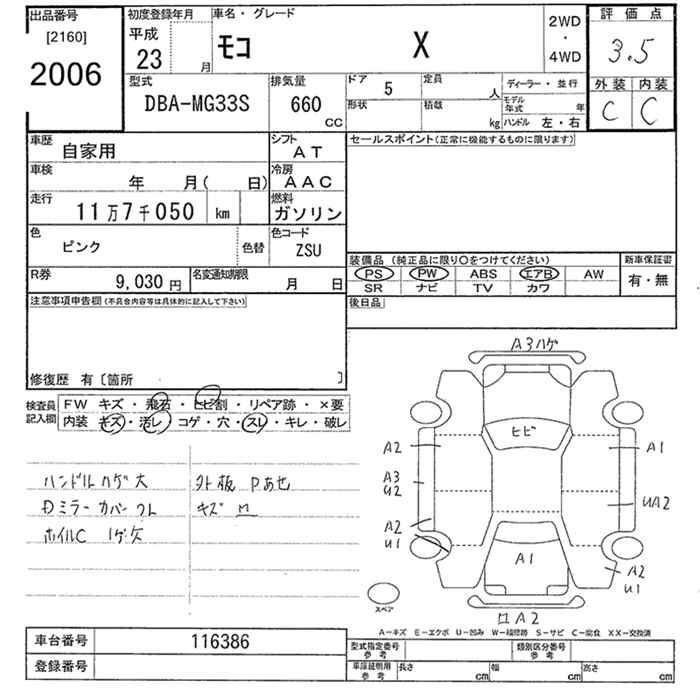 出品番号
[2160]
2006
初度登録年月
平成
23 月
車名・グレード
モコ X
2WD
・
4WD
評価点
3.5
外装 内装
C C
型式
DBA-MG33S
排気量
660
CC
ドア 5
形状
定員 人
積載 kg
ディーラー・並行
モデル年式 年
ハンドル 左・右
車歴
自家用
シフト
AT
車検
年 月( 日)
冷房
AAC
走行
11万7千050 km
燃料
ガソリン
色
ピンク
色替
色コード
ZSU
R券
9,030円
名変通知期限
月 日
セールスポイント(正常に機能するものに限ります)
装備品(純正品に限り○をつけてください)
PS PW ABS エアB AW
SR ナビ TV カワ
新車保証書
有・無
後日品
注意事項申告欄(不具合内容等は具体的に記入して下さい)
修復歴 有〔箇所 〕
検査員記入欄
FW キズ・飛石・ヒビ割・リペア跡・×要
内装 キズ・汚レ・コゲ・穴・スレ・キレ・破レ
ハンドルハゲ大
Dミラーカバークレ
ホイルC 1ケ欠
外板 Pあせ
キズ M
A3ハゲ
ヒビ
A2
A3
U2
A2
U1
A1
UA2
A1
A2
U1
ロA2
スペア
A―キズ E―エクボ U―凹み W―補修跡 S―サビ C―腐食 XX―交換済
車台番号 116386
登録番号
型式指定番号
参考
類別区分番号
参考
車庫証明用
参考
長さ cm
幅 cm
高さ cm